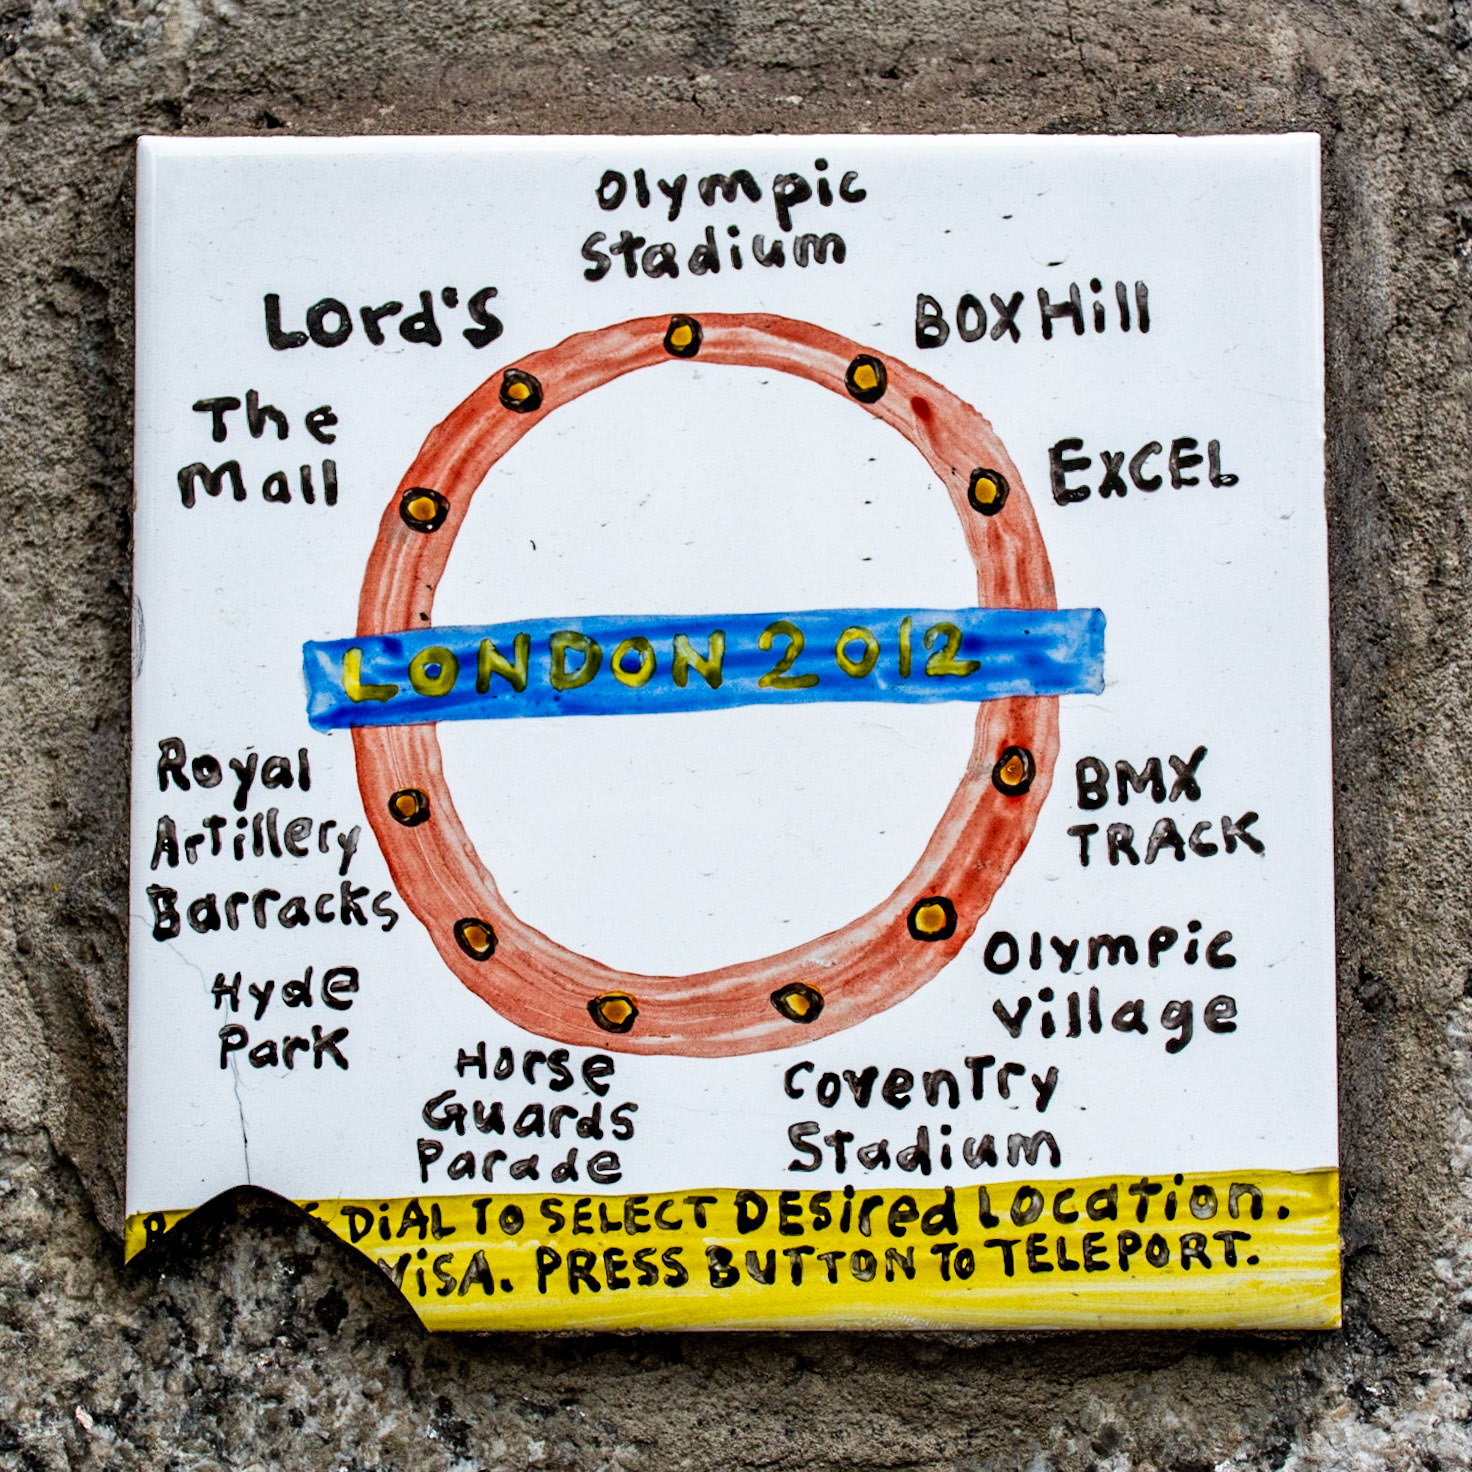 Olympic
Stadium
Lord's
BOX Hill
The
Mall
EXCEL
LONDON 2012
Royal
Artillery
Barracks
BMX
TRACK
Hyde
Park
Olympic
Village
Horse
Guards
Parade
Coventry
Stadium
DIAL TO SELECT DESired Location.
ViSA. PRESS BUTTON TO TELEPORT.